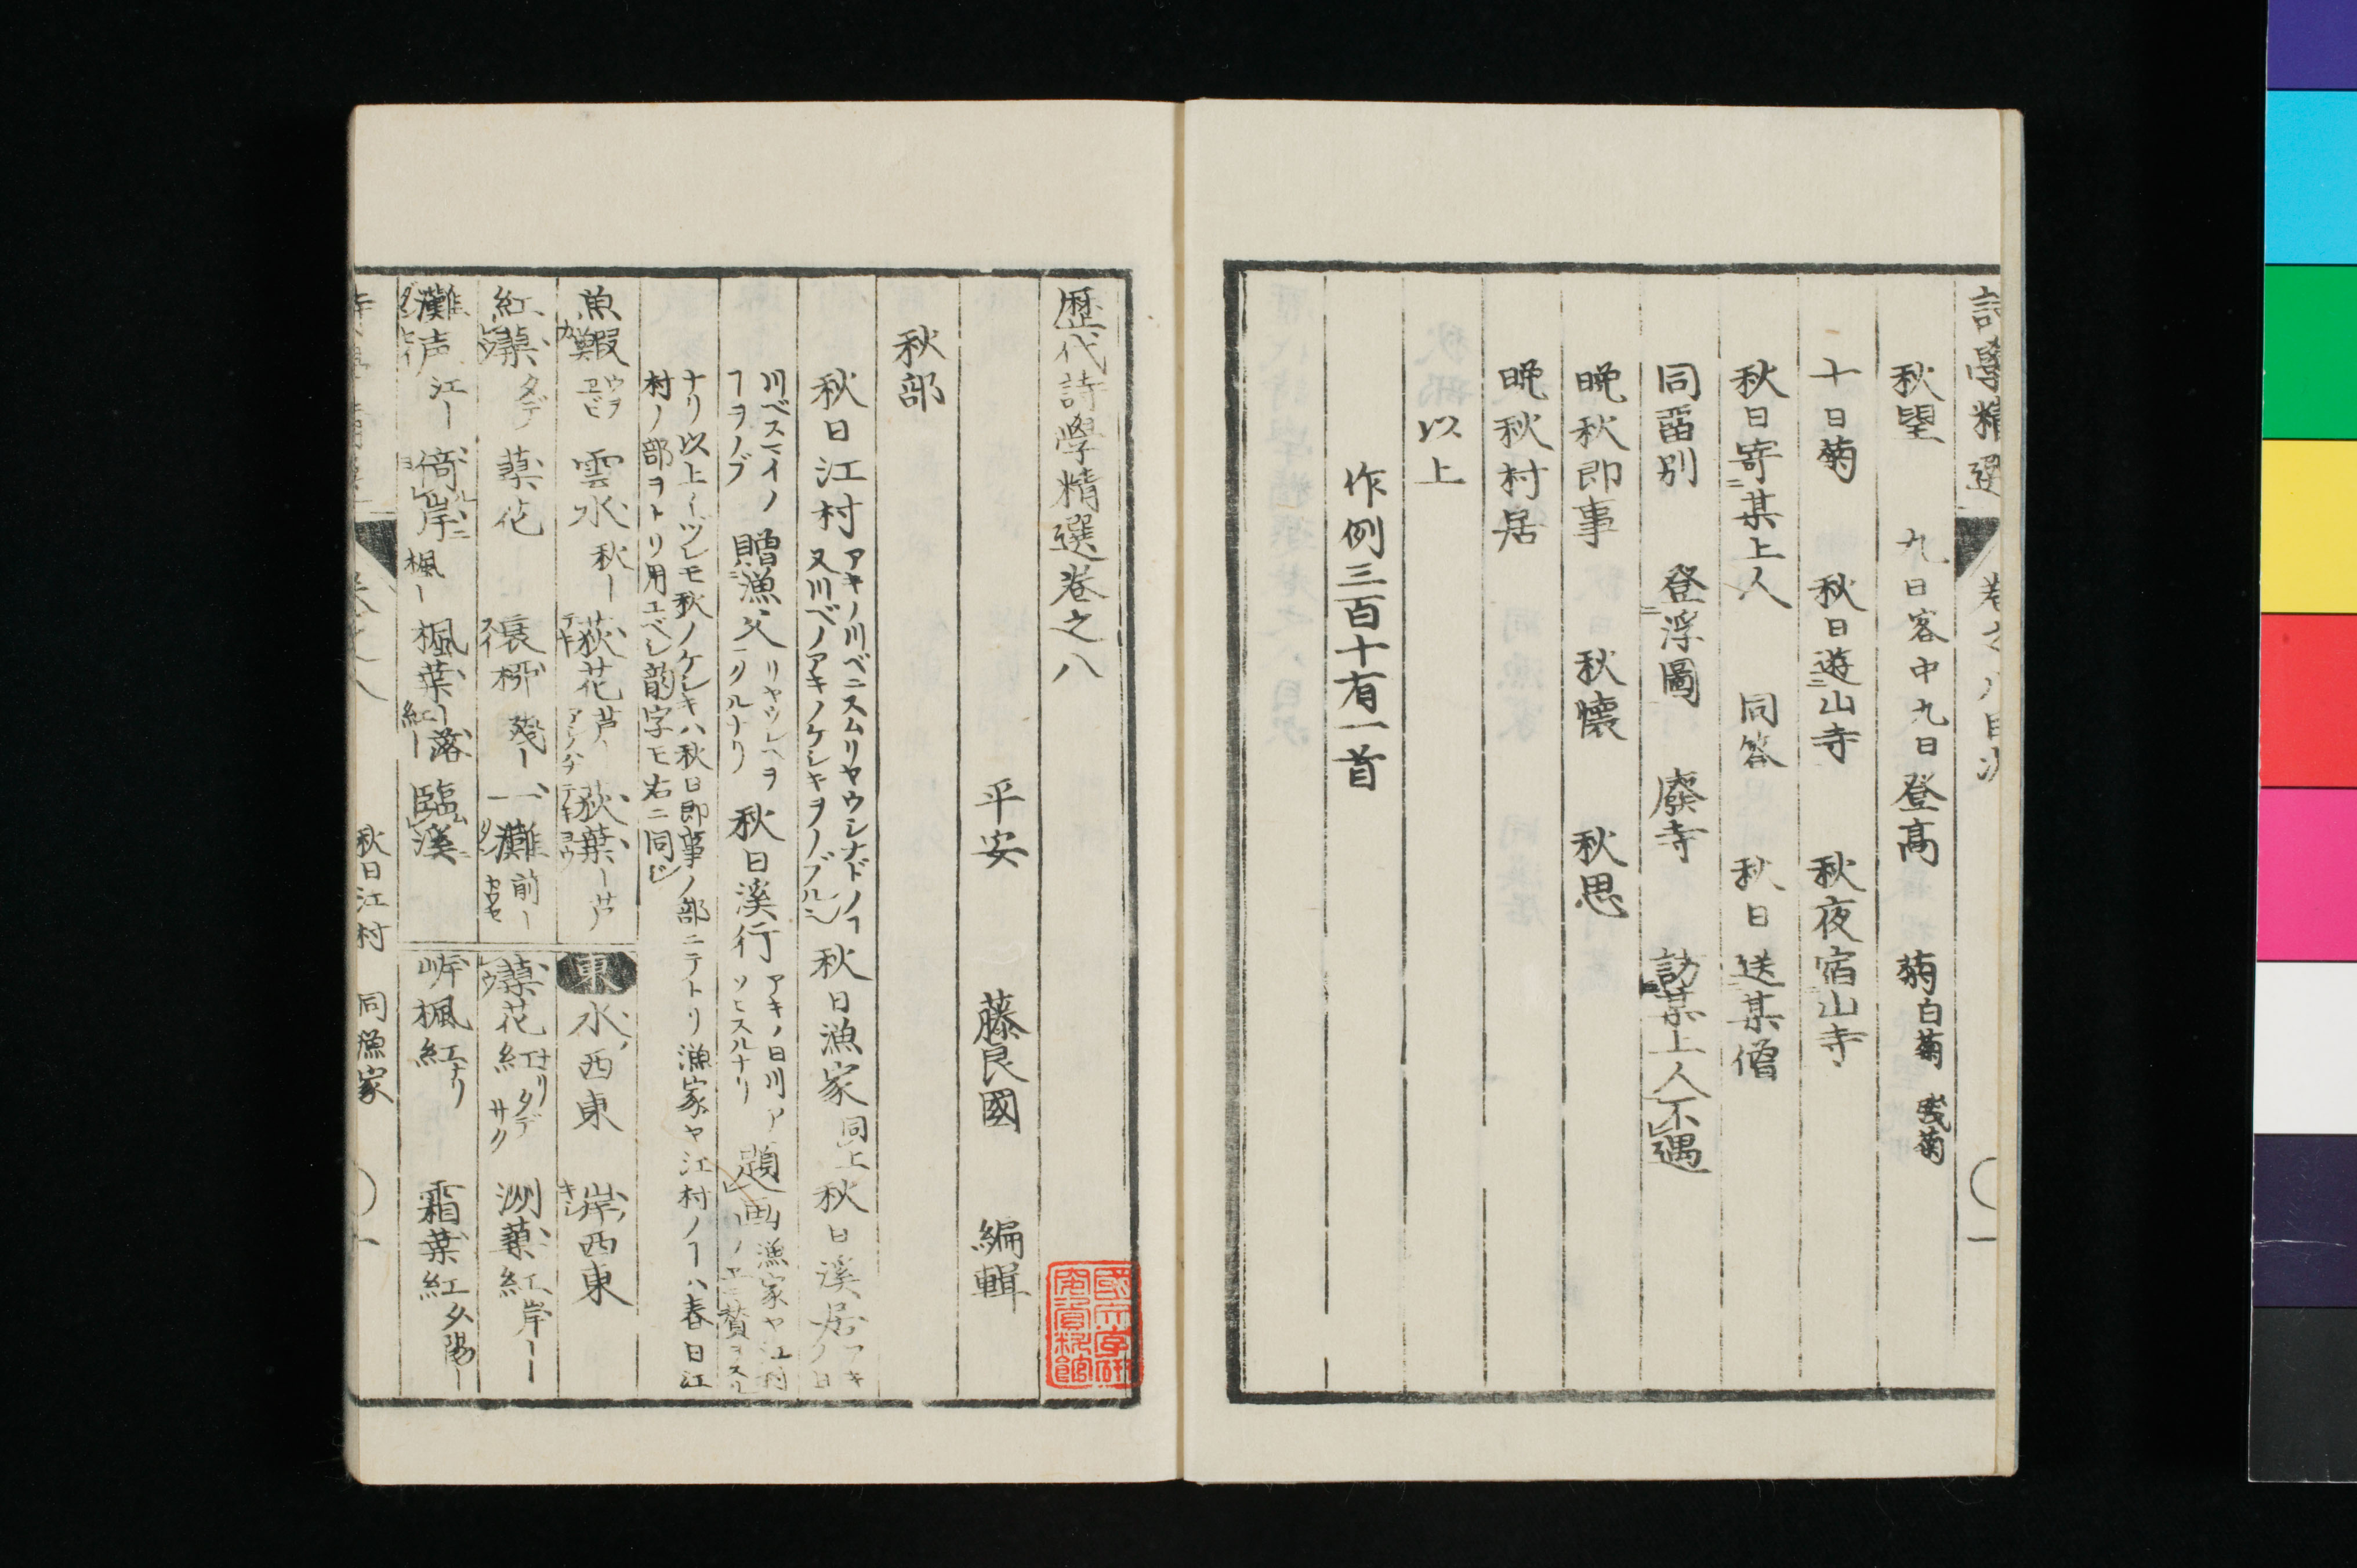 秋望 九日客中九日登高 菊白菊残菊
十日菊 秋日遊山寺 秋夜宿山寺
秋日寄某上人 同答 秋日送某僧
同畱別 登浮圖 廢寺 訪某上人不遇
晩秋即事 秋懷 秋思
晩秋村居
以上
作例三百十有一首
歴代詩學精選卷之八
平安 藤良國 編輯
秋部
秋日江村 アキノ川ベニスムリヤウシナドノヿ又川ベノアキノケシキヲノブル 秋日漁家 同上 秋日溪居
川ベスマイノヿヲノブ 贈漁父 秋日溪行 アキノ日川ソヒスルナリ 題画 漁家ヤ江村
ナリ以上イツレモ秋ノケシキハ秋日即事ノ部ニテトリ漁家ヤ江村ノヿハ春日江
村ノ部ヲトリ用ユベシ韵字モ右ニ同ジ
魚鰕 ウヲエビ 雲水 秋ー 荻花 芦ー 荻葉 ー芦
東 水西東 岸西東
紅蓼 タデ 蓼花 衰柳 残ー 一灘 前ー
蓼花紅 洲蓼紅 岸ーー
灘声 江ー 倚岸 楓ー 楓葉 紅ー ー落 臨溪
岸楓紅ナリ 霜葉紅 夕陽ー
秋日江村 同漁家